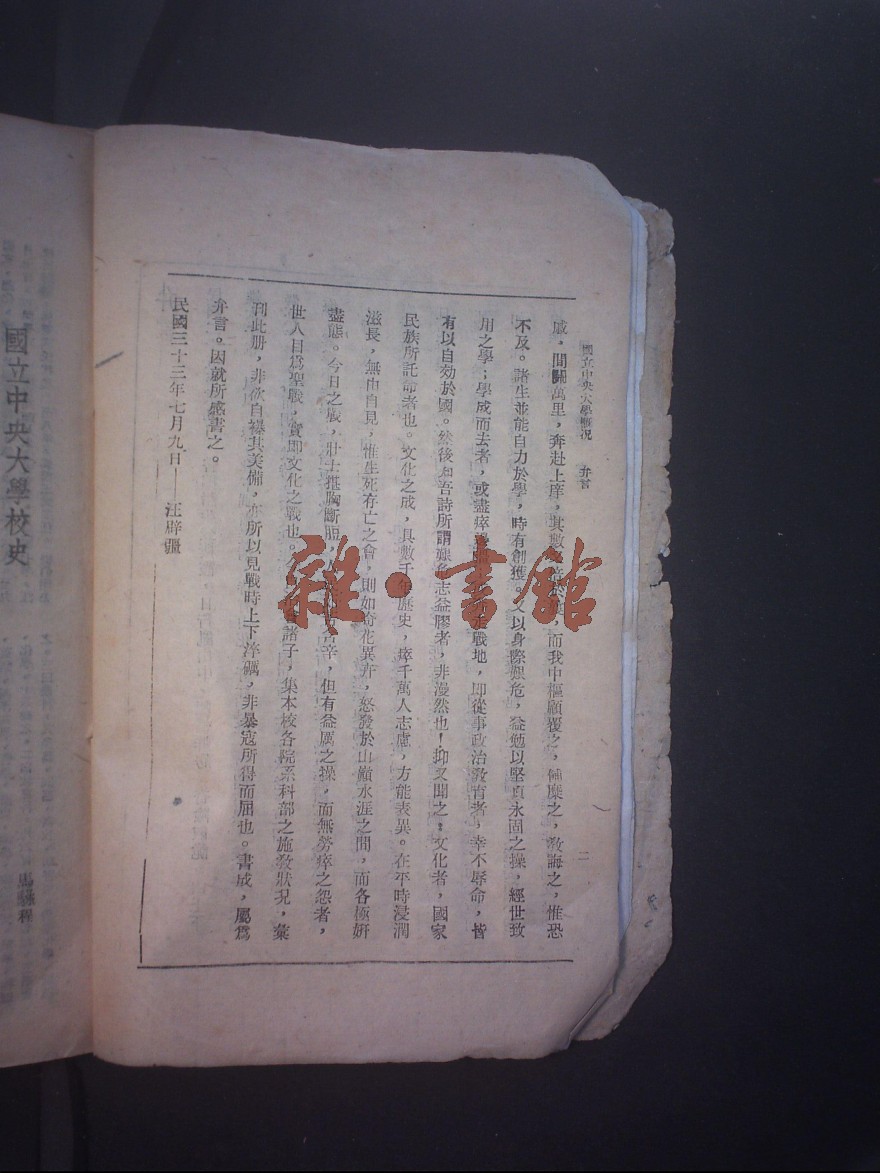 國立中央大學概況　弁言
二
戚，間關萬里，奔赴上庠，其數 ，而我中樞顧覆之，餔糜之，敎誨之，惟恐
不及。諸生並能自力於學，時有創獲。又以身際艱危，益勉以堅貞永固之操，經世致
用之學；學成而去者，或盡瘁 戰地，卽從事政治敎育者，幸不辱命，皆
有以自効於國。然後知吾詩所謂艱危志益膠者，非漫然也！抑又聞之：文化者，國家
民族所託命者也。文化之成，具數千年歷史，瘁千萬人志慮，方能表異。在平時浸潤
滋長，無由自見，惟生死存亡之會，則如奇花異卉，怒發於山巓水涯之間，而各極妍
盡態。今日之戰，壯士摧胸斷脰， 辛，但有益厲之操，而無勞瘁之怨者，
世人目爲聖戰，實卽文化之戰也。 諸子，集本校各院系科部之施敎狀況，彙
刊此册，非欲自襮其美備，亦所以見戰時上下淬礪，非暴寇所得而屈也。書成，屬爲
弁言。因就所感書之。
民國三十三年七月九日——汪辟疆
雜·書館
國立中央大學校史